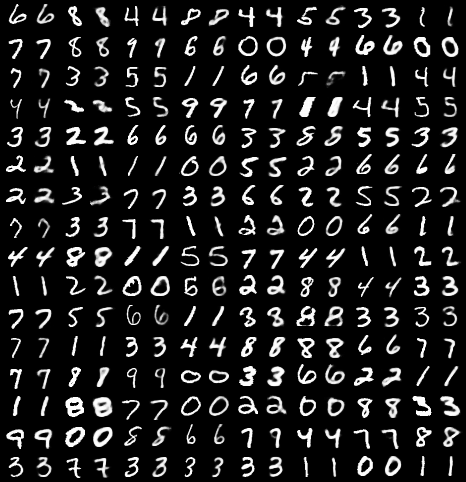 6 6 8 8 4 4 8 8 4 4 5 5 3 3 1 1
7 7 8 8 9 9 6 6 0 0 4 4 6 6 0 0
7 7 3 3 5 5 1 1 6 6 5 5 1 1 4 4
4 4 2 2 5 5 9 9 7 7 1 1 4 4 5 5
3 3 2 2 6 6 6 6 3 3 8 8 5 5 3 3
2 2 1 1 1 1 0 0 5 5 2 2 6 6 6 6
2 2 3 3 7 7 3 3 6 6 2 2 5 5 2 2
7 7 3 3 7 7 1 1 2 2 0 0 6 6 1 1
4 4 8 8 1 1 5 5 7 7 4 4 1 1 2 2
1 1 2 2 0 0 5 6 2 2 8 8 4 4 3 3
7 7 5 5 6 6 1 1 3 3 8 8 3 3 3 3
7 7 1 1 3 3 4 4 8 8 8 8 6 6 7 7
7 7 8 8 9 9 0 0 3 3 6 6 2 2 1 1
1 1 8 8 7 7 0 0 2 2 0 0 8 8 3 3
9 9 0 0 8 8 6 6 7 9 4 4 7 7 8 8
3 3 7 7 3 3 3 3 3 3 1 1 0 0 1 1